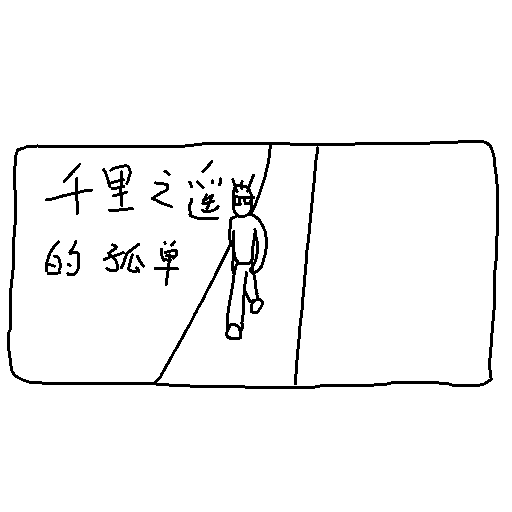 千里之遥
的孤单